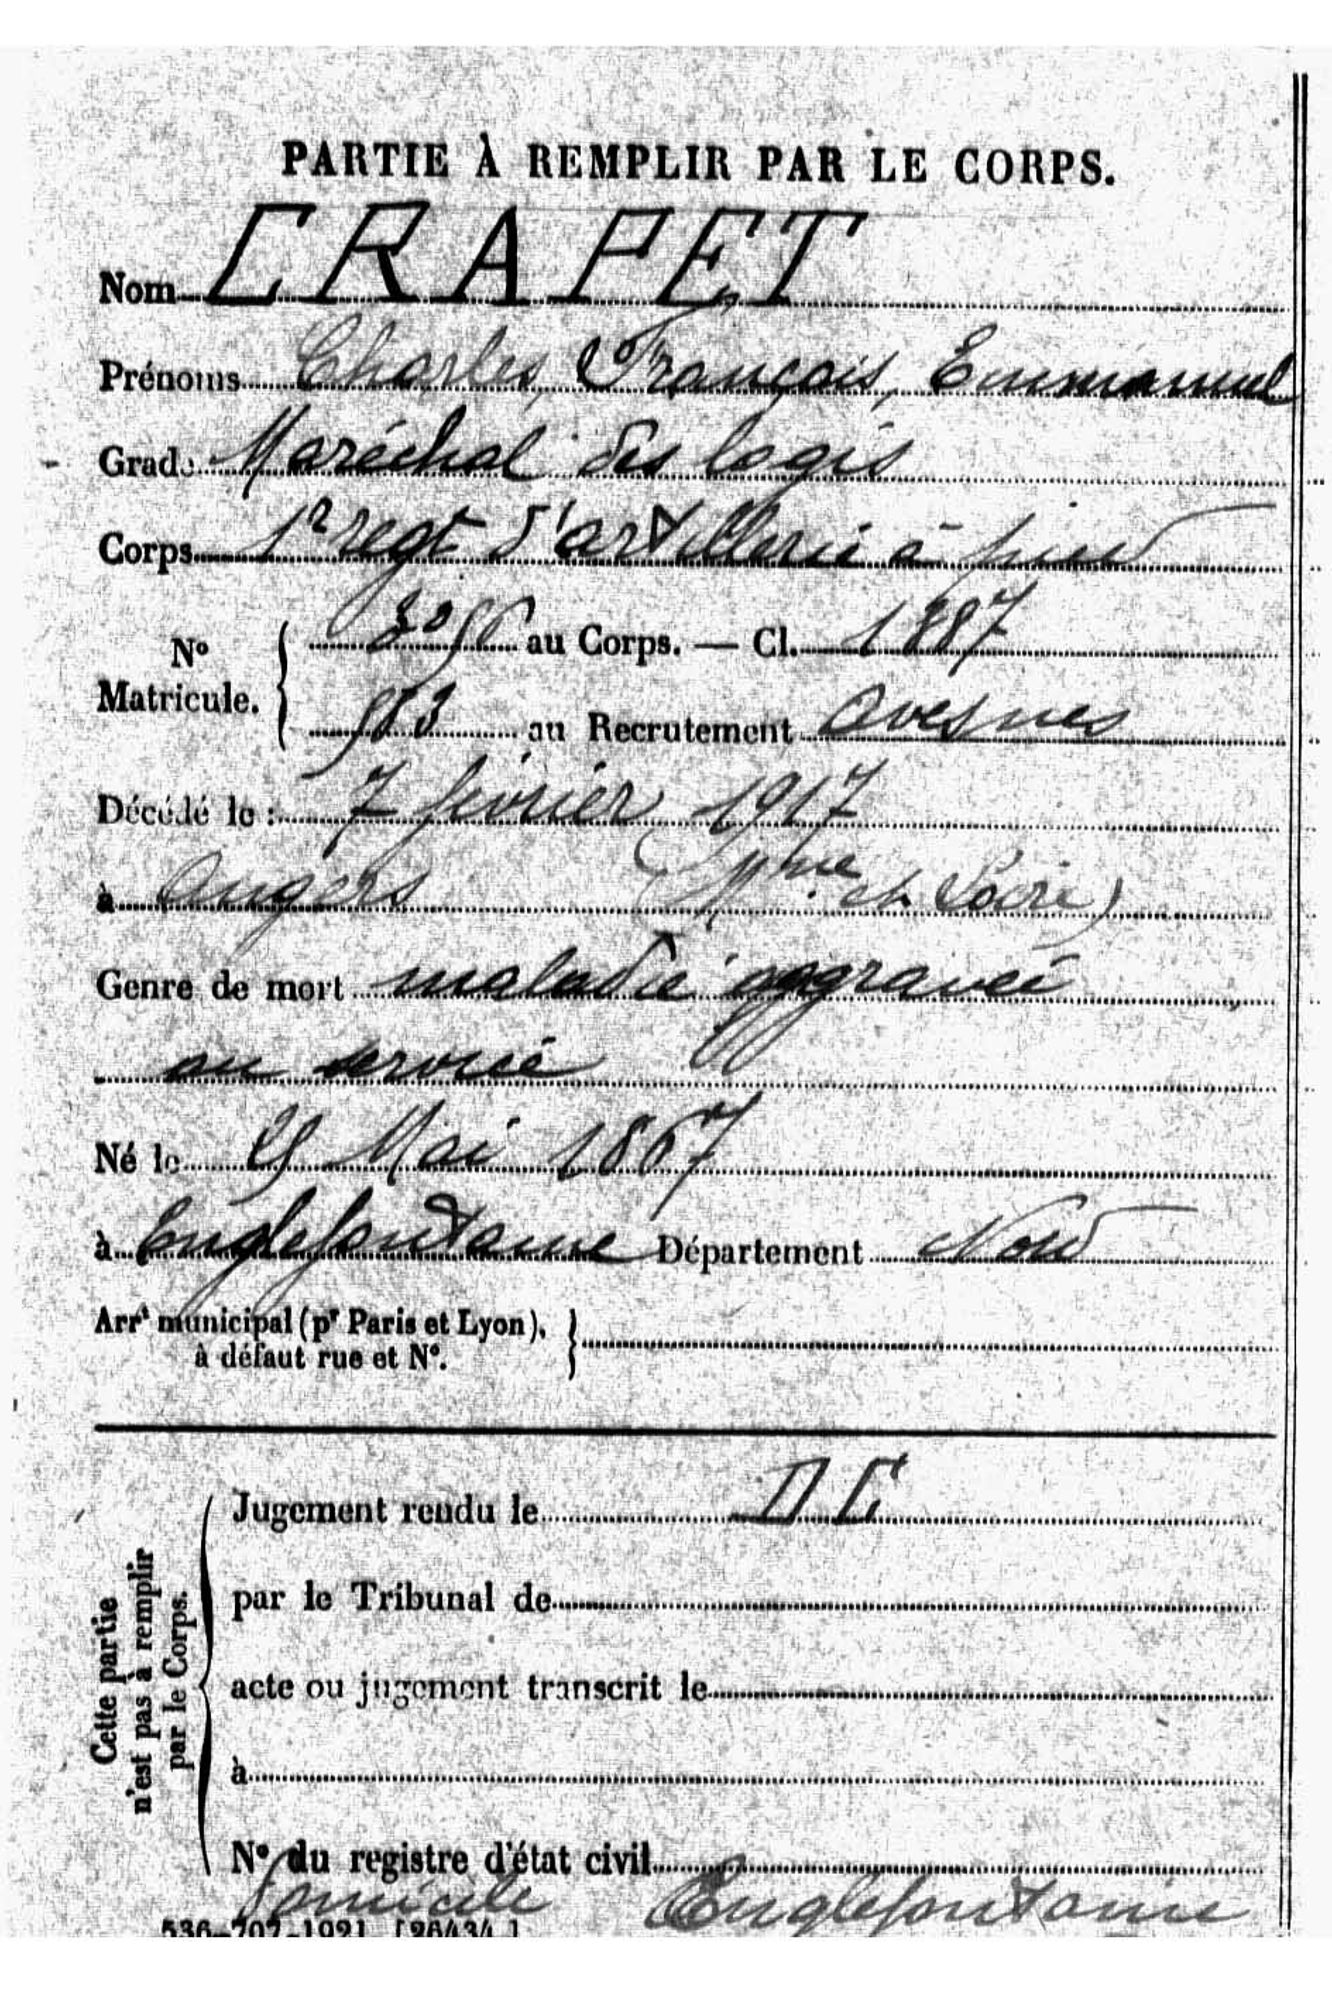 PARTIE À REMPLIR PAR LE CORPS.
Nom CRAPET
Prénoms Charles, François, Emmanuel
Grade Maréchal des logis
Corps 1r regt d'artillerie à pied
N° Matricule. au Corps. — Cl. 1887
983 au Recrutement Avesnes
Décédé le : 7 février 1917
à Angers (Mne et Loire)
Genre de mort maladie aggravée
au service
Né le Mai 1867
à Englefontaine Département Nord
Arrt municipal (pr Paris et Lyon),
à défaut rue et N°.
Cette partie
n'est pas à remplir
par le Corps.
Jugement rendu le DC
par le Tribunal de
acte ou jugement transcrit le
à
N° du registre d'état civil
Domicile Englefontaine
536-707-1921. [26434.]